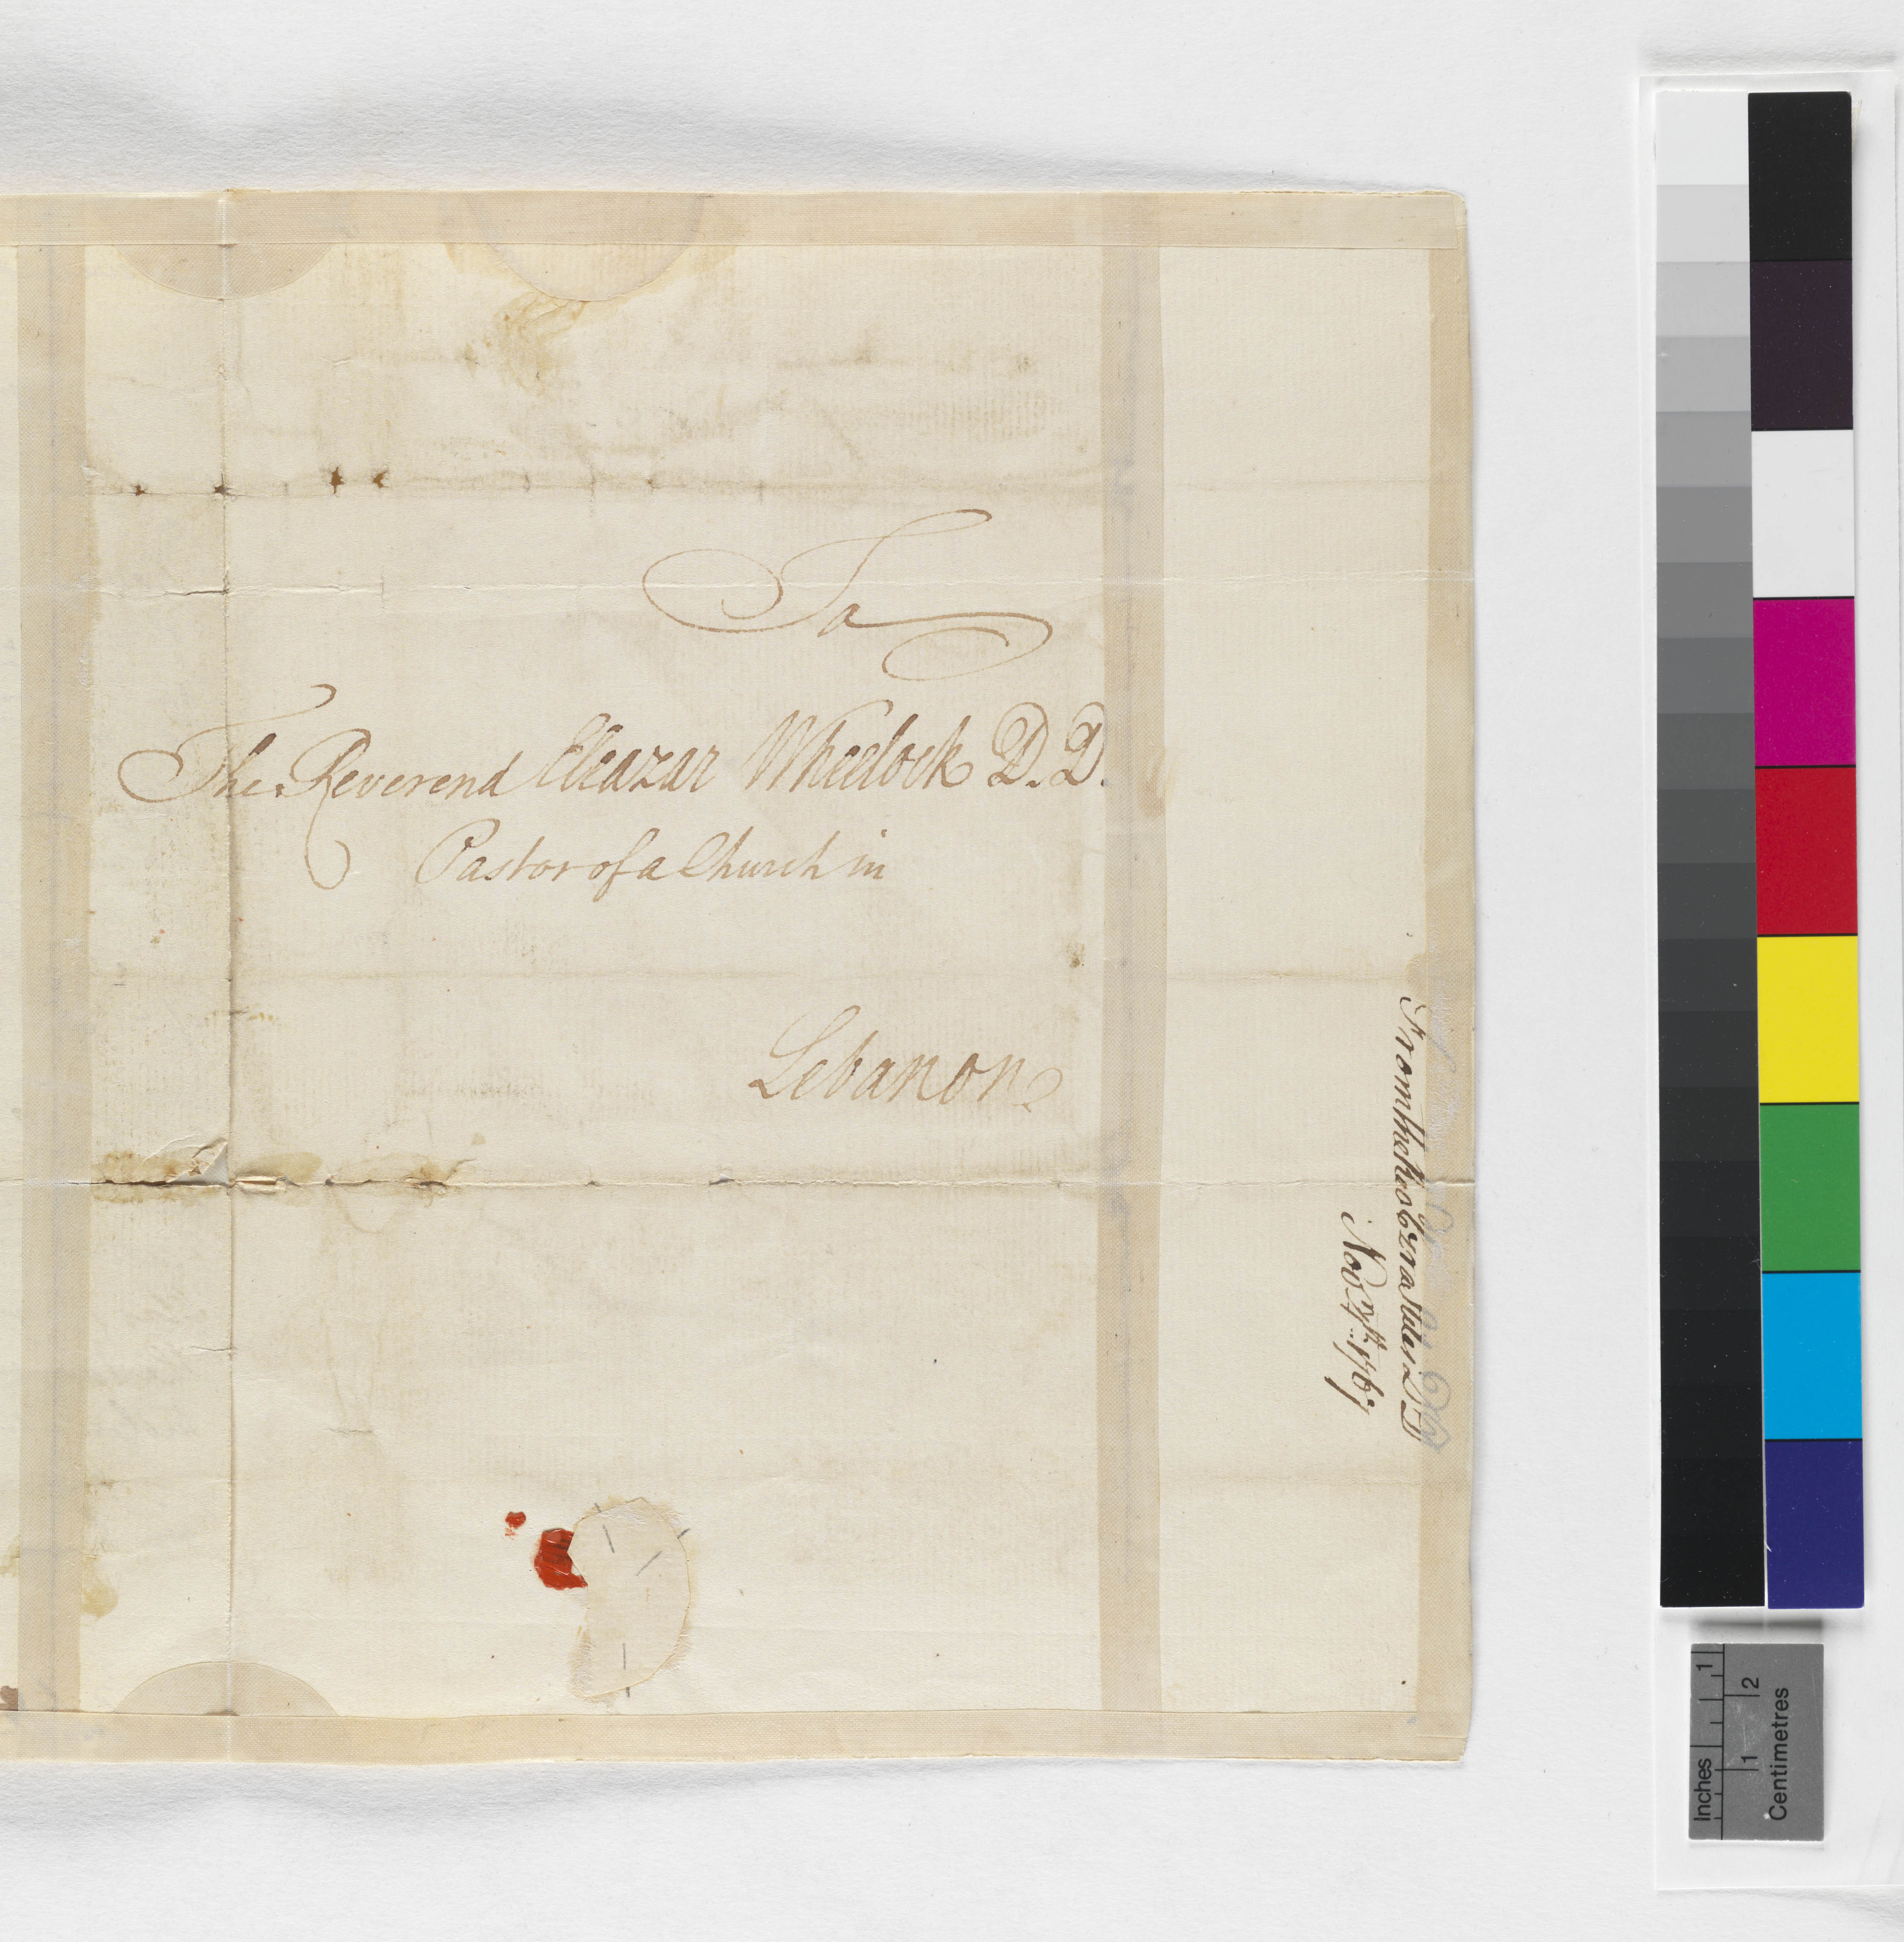 To
The Reverend Eleazar Wheelock D.D.
Pastor of a Church in
Lebanon
From the Revd Ezra Stiles D.D
Nov. 1767
Inches
1
1
2
Centimetres